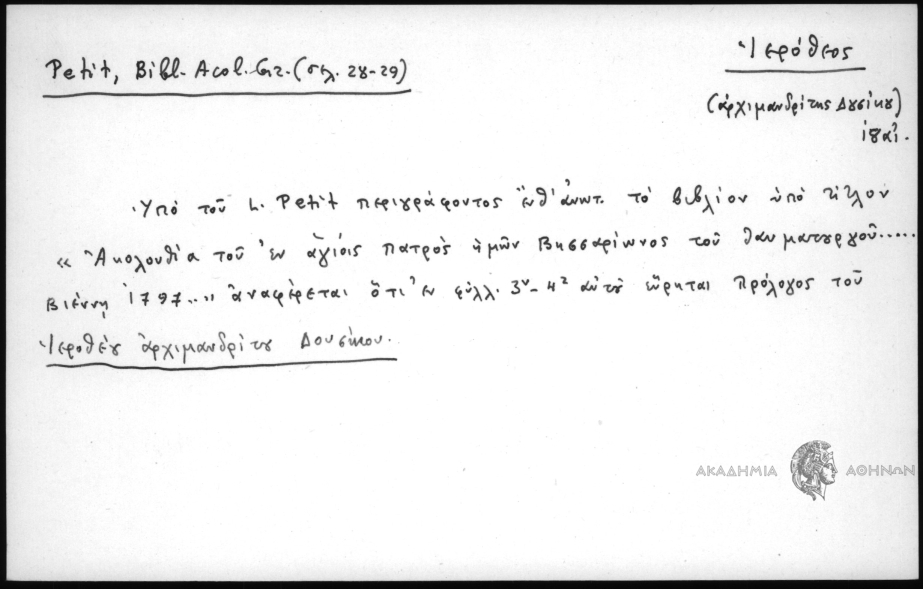 Ἱερόθεος
Petit, Bibl. Acol. Gr. (σελ. 28-29)
(ἀρχιμανδρίτης Δουσίκου)
ιη΄ αἰ.
Ὑπό τοῦ L. Petit περιγράφοντος ἔνθ' ἀνωτ. τό βιβλίον ὑπό τίτλον
« Ἀκολουθία τοῦ ἐν ἁγίοις πατρός ἡμῶν Βησσαρίωνος τοῦ θαυματουργοῦ.....
Βιέννῃ 1797..» ἀναφέρεται ὅτι ἐν φύλλ. 3v-4r αὐτοῦ εὕρηται πρόλογος τοῦ
Ἱεροθέου ἀρχιμανδρίτου Δουσίκου.
ΑΚΑΔΗΜΙΑ ΑΘΗΝΩΝ